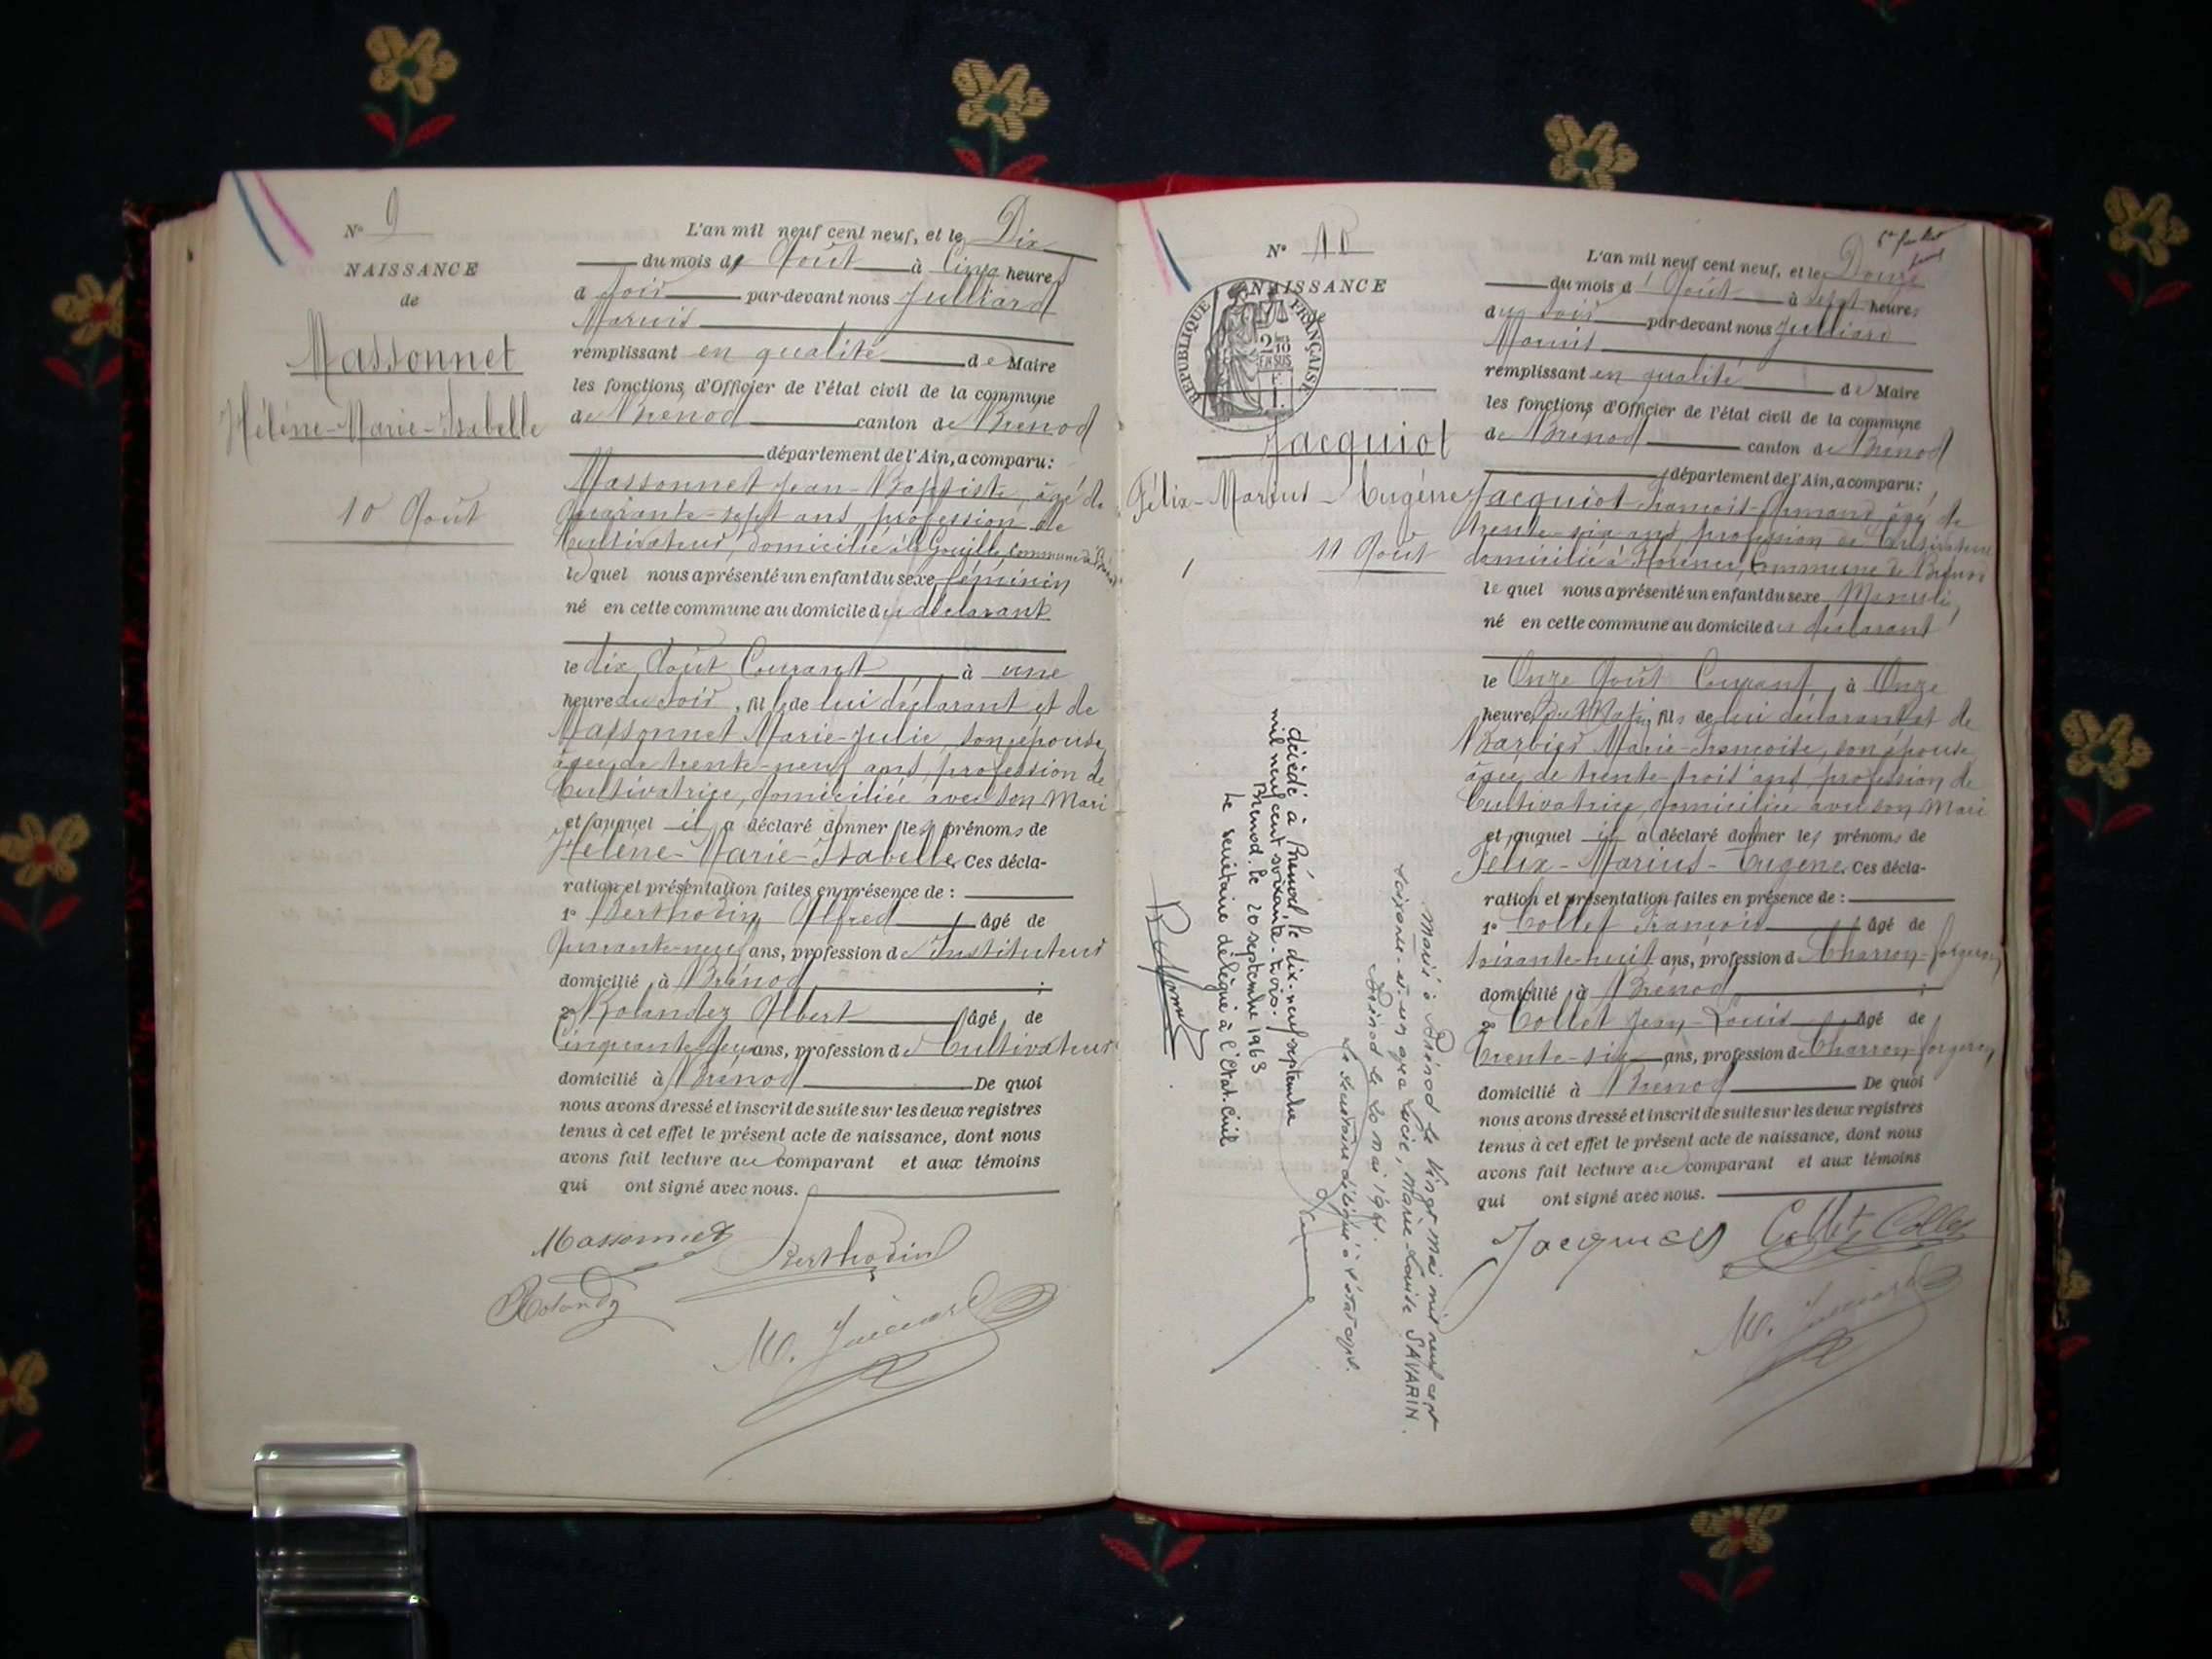 N° 9
NAISSANCE
de
Massonnet
Hélène-Marie-Isabelle
10 Août
L'an mil neuf cent neuf, et le Dix
du mois d' Août à Cinq heures
du soir par-devant nous Julliard
Marius
remplissant en qualité de Maire
les fonctions d'Officier de l'état civil de la commune
de Brénod canton de Brénod
département de l'Ain, a comparu:
Massonnet Jean-Baptiste, âgé de
quarante-sept ans, profession de
Cultivateur, domicilié à la Gouille, Commune de Brénod
lequel nous a présenté un enfant du sexe féminin
né en cette commune au domicile du déclarant
le dix Août Courant à une
heure du soir, fille de lui déclarant et de
Massonnet Marie-Julie, son épouse,
âgée de trente-neuf ans, profession de
Cultivatrice, domiciliée avec son Mari
et auquel il a déclaré donner les prénoms de
Hélène-Marie-Isabelle. Ces décla-
ration et présentation faites en présence de :
1° Berthodin Alfred âgé de
ans, profession d'Instituteur
domicilié à Brénod ;
2° Rolandez Albert âgé de
Cinquante-deux ans, profession de Cultivateur
domicilié à Brénod De quoi
nous avons dressé et inscrit de suite sur les deux registres
tenus à cet effet le présent acte de naissance, dont nous
avons fait lecture au comparant et aux témoins
qui ont signé avec nous.
Massonnet Berthodin
Rolandz
M. Julliard
N° 10
NAISSANCE
de
REPUBLIQUE FRANÇAISE
2/10 EN SUS
Jacquiot
Félix-Marius-Eugène
11 Août
décédé à Brénod le dix-neuf septembre
mil neuf cent soixante-trois.
Brénod. le 20 septembre 1963
Le secrétaire délégué à l'Etat-Civil
Marié à Brénod le vingt mai mil neuf cent
avec Lucie, Marie-Louise SAVARIN.
Brénod le 20 mai
Le secrétaire délégué à l'état civil.
L'an mil neuf cent neuf, et le Douze
du mois d'Août à sept heures
du soir par-devant nous Julliard
Marius
remplissant en qualité de Maire
les fonctions d'Officier de l'état civil de la commune
de Brénod canton de Brénod
département de l'Ain, a comparu:
Jacquiot François-Armand, âgé de
trente-six ans, profession de Cultivateur
domicilié à Commune de Brénod
lequel nous a présenté un enfant du sexe Masculin,
né en cette commune au domicile du déclarant
le Onze Août Courant, à Onze
heures du Matin, fils de lui déclarant et de
Barbier Marie-Françoise, son épouse
âgée de trente-trois ans, profession de
Cultivatrice, domiciliée avec son Mari
et auquel il a déclaré donner les prénoms de
Félix-Marius-Eugène. Ces décla-
ration et présentation faites en présence de :
1° Collet François âgé de
soixante-huit ans, profession de Charron-forgeron
domicilié à Brénod ;
2° Collet Jean-Louis âgé de
trente-six ans, profession de Charron-forgeron
domicilié à Brénod De quoi
nous avons dressé et inscrit de suite sur les deux registres
tenus à cet effet le présent acte de naissance, dont nous
avons fait lecture au comparant et aux témoins
qui ont signé avec nous.
Jacquiot Collet Collet
M. Julliard